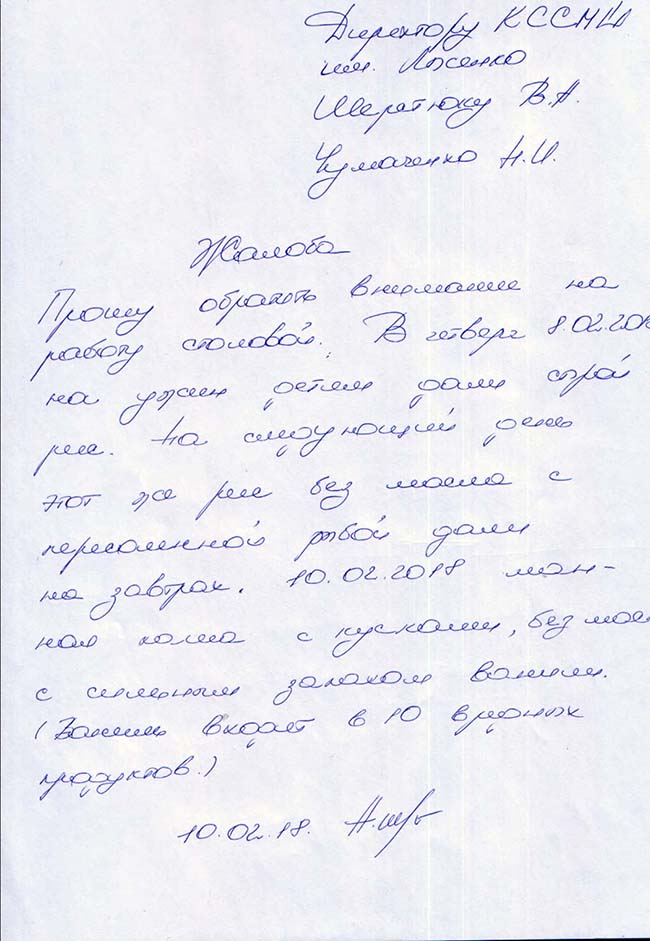 Директору КССМШ
им. Лысенко
В.А.
Чумаченко Н.И.
Жалоба
Прошу обратить внимание на
работу столовой. В четверг 8.02.201
на ужин детям дали
рис. На следующий день
этот же рис без масла с
пересоленной рыбой дали
на завтрак. 10.02.2018 ман-
ная каша с кусками, без мас
с сильным запахом ванили.
(Ванилин входит в 10 вредных
продуктов.)
10.02.18.